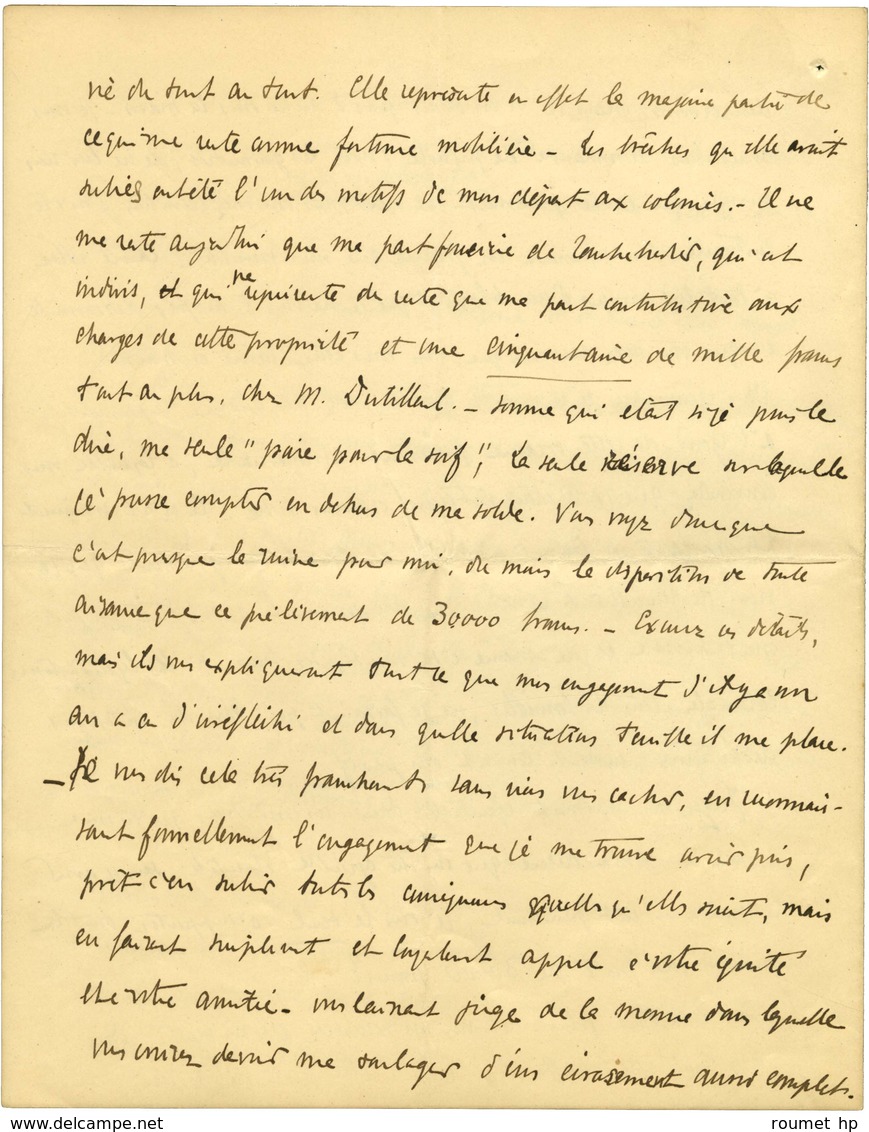 né du tout au tout. Elle représente en effet la majeure partie de
ce qui me reste comme fortune mobilière – Les brèches qu'elle avait
subies ont été l'un des motifs de mon départ aux colonies. – Il ne
me reste aujourd'hui que ma part foncière de, qui est
indivis, et qui ne représente du reste que ma part contributive aux
charges de cette propriété et une cinquantaine de mille francs
tout au plus, chez M. Dutilleul. – somme qui était si je puis le
dire, ma seule "poire pour la soif", la seule réserve sur laquelle
je puisse compter en dehors de ma solde. Vous voyez donc que
c'est presque la ruine pour moi, du moins la disparition de toute
aisance que ce prélèvement de 30,000 francs. – Excusez ces détails,
mais ils vous expliqueront tout ce que mon engagement d'il y a un
an a eu d'irréfléchi et dans quelle situation terrible il me place.
– Je vous dis cela très franchement sans rien vous cacher, en reconnais-
sant formellement l'engagement que je me trouve avoir pris,
prêt à en subir toutes les conséquences quelles qu'elles soient, mais
en faisant simplement et loyalement appel à votre équité
et à votre amitié – vous laissant juge de la mesure dans laquelle
vous croirez devoir me soulager d'un écrasement aussi complet.
roumet hp